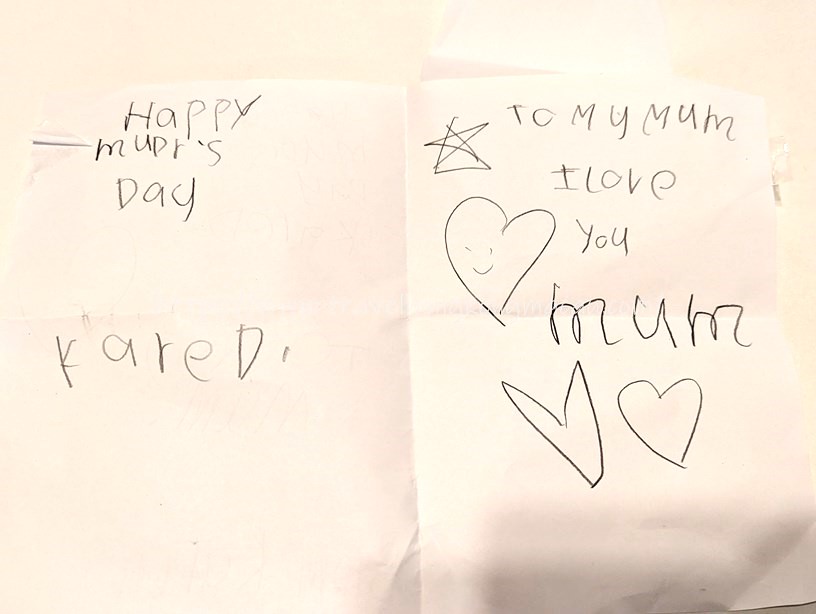 Happy
mupr's
Day
KareD.
To My Mum
I love
you
mum